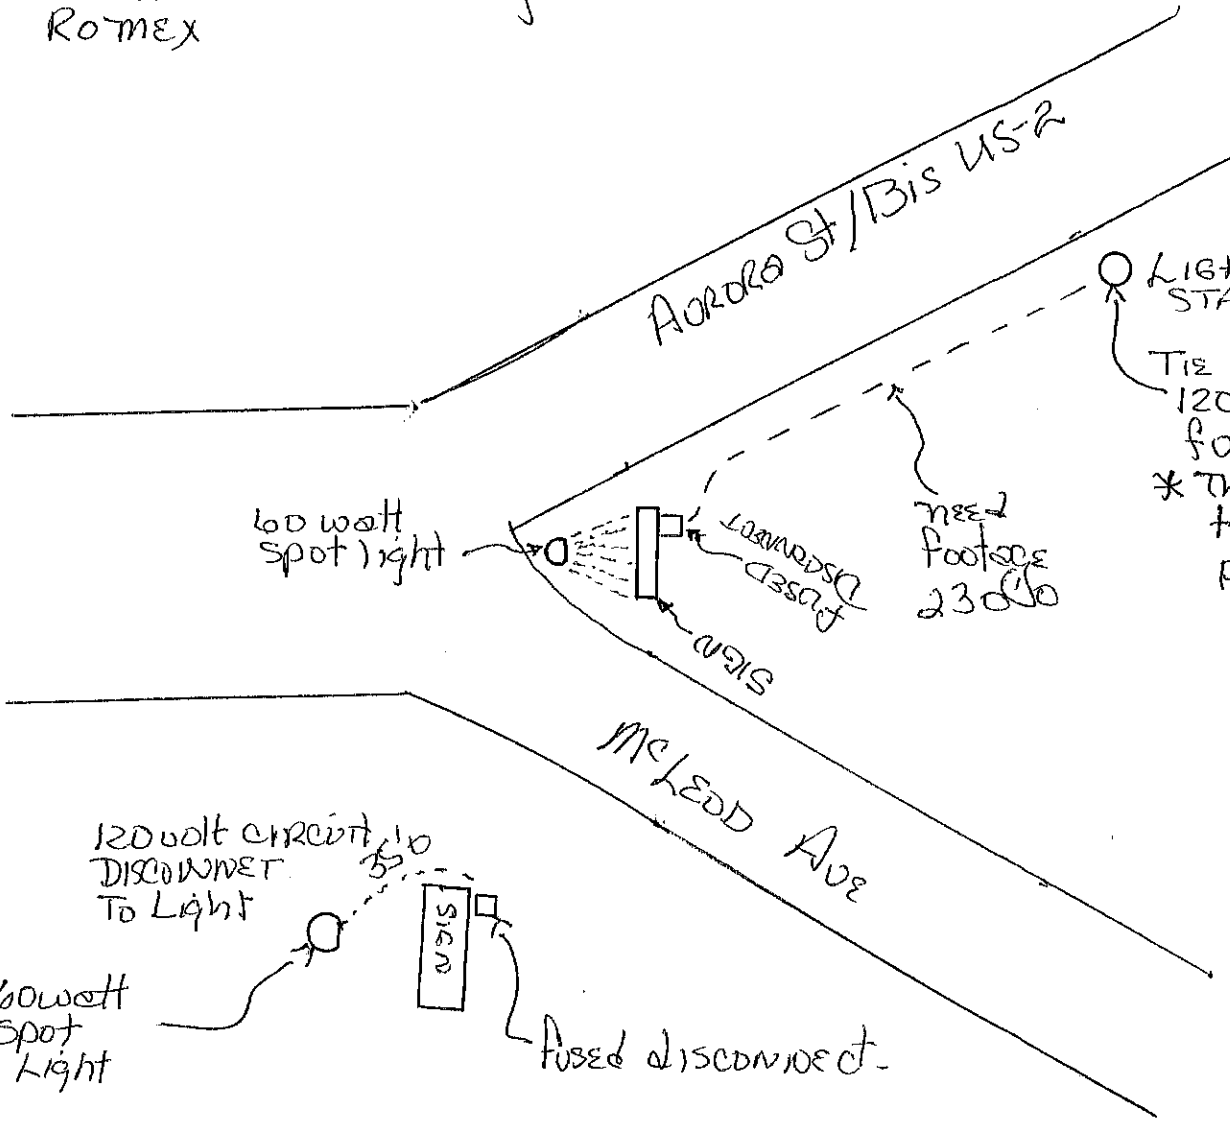 ROMEX
AURORA St/Bis US-2
LIG
STA
TIE
120
fo
* Th
t
60 watt
spot light
FUSED
DISCONNECT
need
footage
230
SIGN
McLEOD AVE
120 volt CIRCUIT
DISCONNET
To Light
SIGN
60 watt
Spot
Light
fused disconnect.